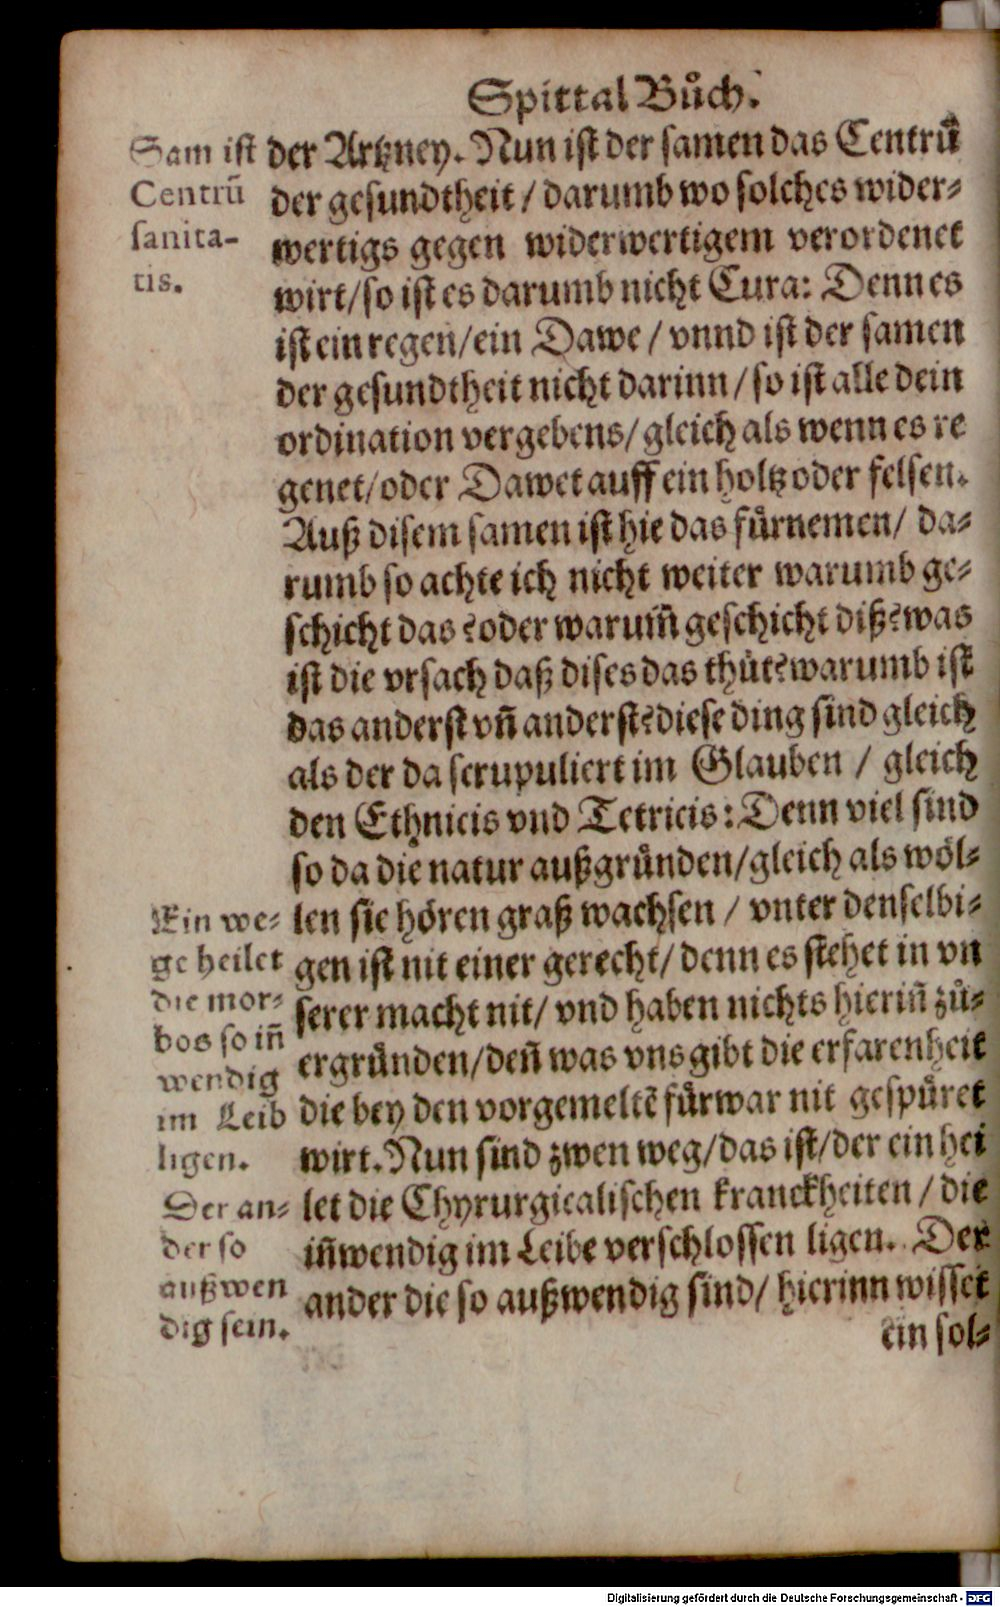 Spittal Bůch.
Sam ist
Centrū
sanita-
tis.
der Artzney. Nun ist der samen das Centrū
der gesundtheit / darumb wo solches wider-
wertigs gegen widerwertigem verordenet
wirt/so ist es darumb nicht Cura: Denn es
ist ein regen/ein Dawe / vnnd ist der samen
der gesundtheit nicht darinn/so ist alle dein
ordination vergebens/gleich als wenn es re
genet/oder Dawet auff ein holtz oder felsen.
Auß disem samen ist hie das fürnemen/ da-
rumb so achte ich nicht weiter warumb ge-
schicht das? oder warum̄ geschicht diß? was
ist die vrsach daß dises das thůt? warumb ist
das anderst vn̄ anderst? diese ding sind gleich
als der da scrupuliert im Glauben / gleich
den Ethnicis vnd Tetricis: Denn viel sind
so da die natur außgründen/gleich als wöl-
len sie hören graß wachsen / vnter denselbi-
gen ist nit einer gerecht/ denn es stehet in vn
serer macht nit/ vnd haben nichts hierin̄ zů-
ergründen/den̄ was vns gibt die erfarenheit
die bey den vorgemeltē fürwar nit gespüret
wirt. Nun sind zwen weg/das ist/der ein hei
let die Chyrurgicalischen kranckheiten / die
in̄wendig im Leibe verschlossen ligen. Der
ander die so außwendig sind/ hierinn wisset
Ein we-
ge heilet
die mor-
bos so in̄
wendig
im Leib
ligen.
Der an-
der so
außwen
dig sein.
ein sol-
Digitalisierung gefördert durch die Deutsche Forschungsgemeinschaft - DFG